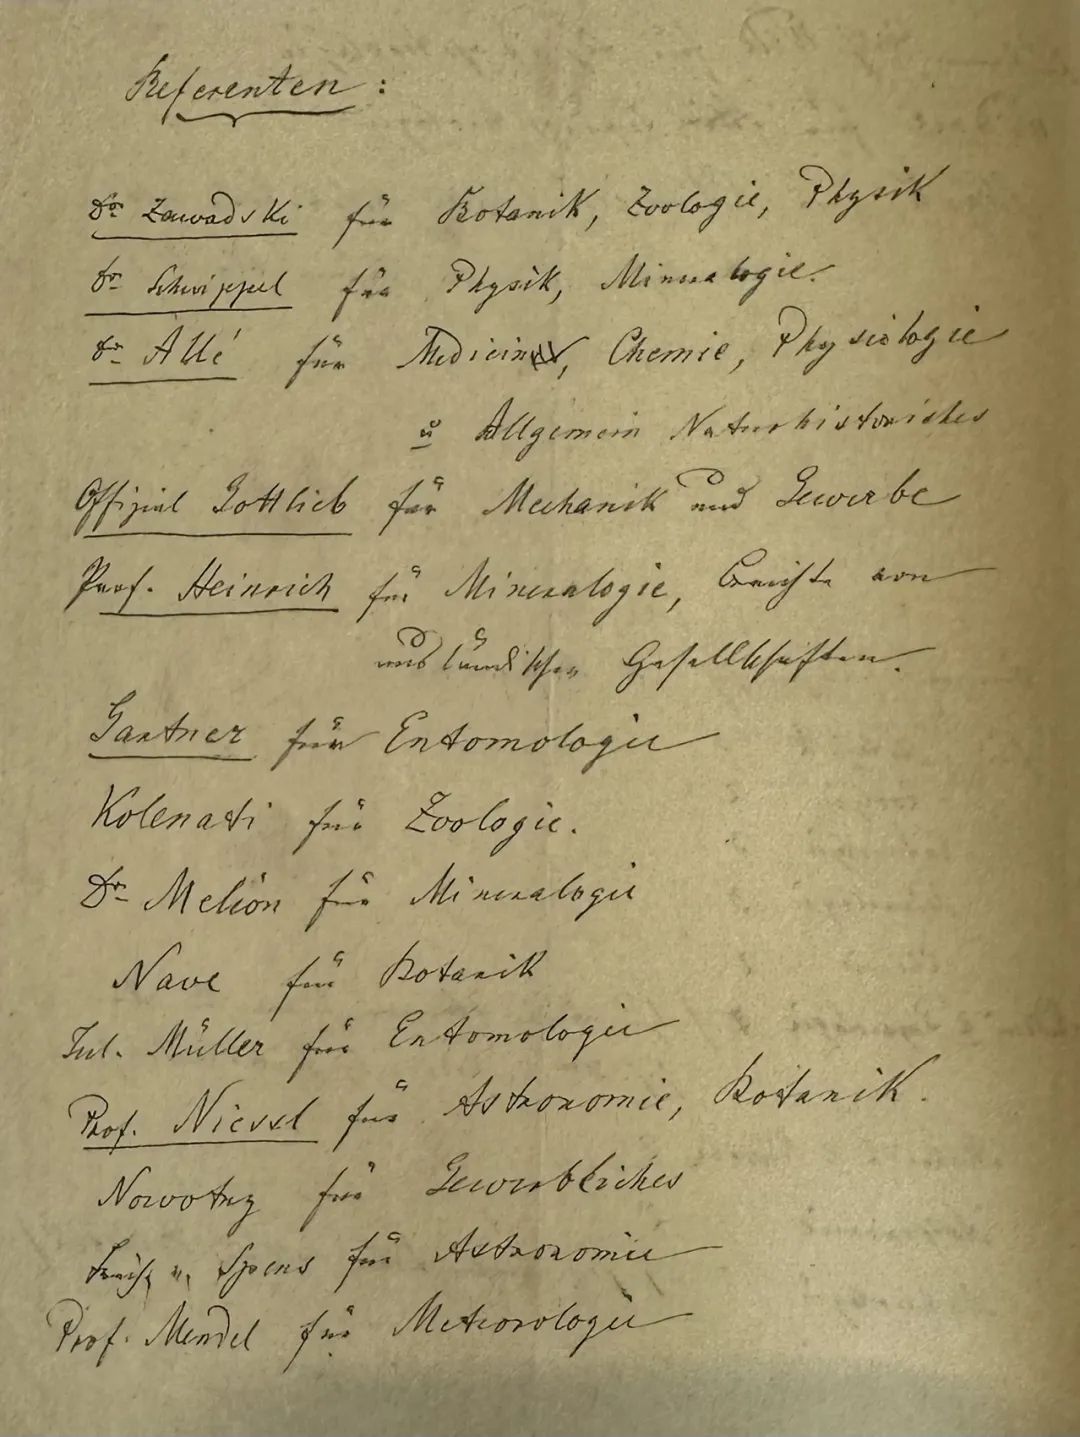 Referenten :
Dr Zawadski für Botanik, Zoologie, Physik
Dr Schwippel für Physik, Mineralogie.
Dr Allé für Medicin, Chemie, Physiologie
u Allgemein Naturhistorisches
Offizial Gottlieb für Mechanik und Gewerbe
Prof. Heinrich für Mineralogie, Berichte von
ausländischen Gesellschaften.
Gartner für Entomologie
Kolenati für Zoologie.
Dr Melion für Mineralogie
Nave für Botanik
Jul. Müller für Entomologie
Prof. Niessl für Astronomie, Botanik.
Nowotny für Gewerbliches
v. Spens für Astronomie
Prof. Mendel für Meteorologie